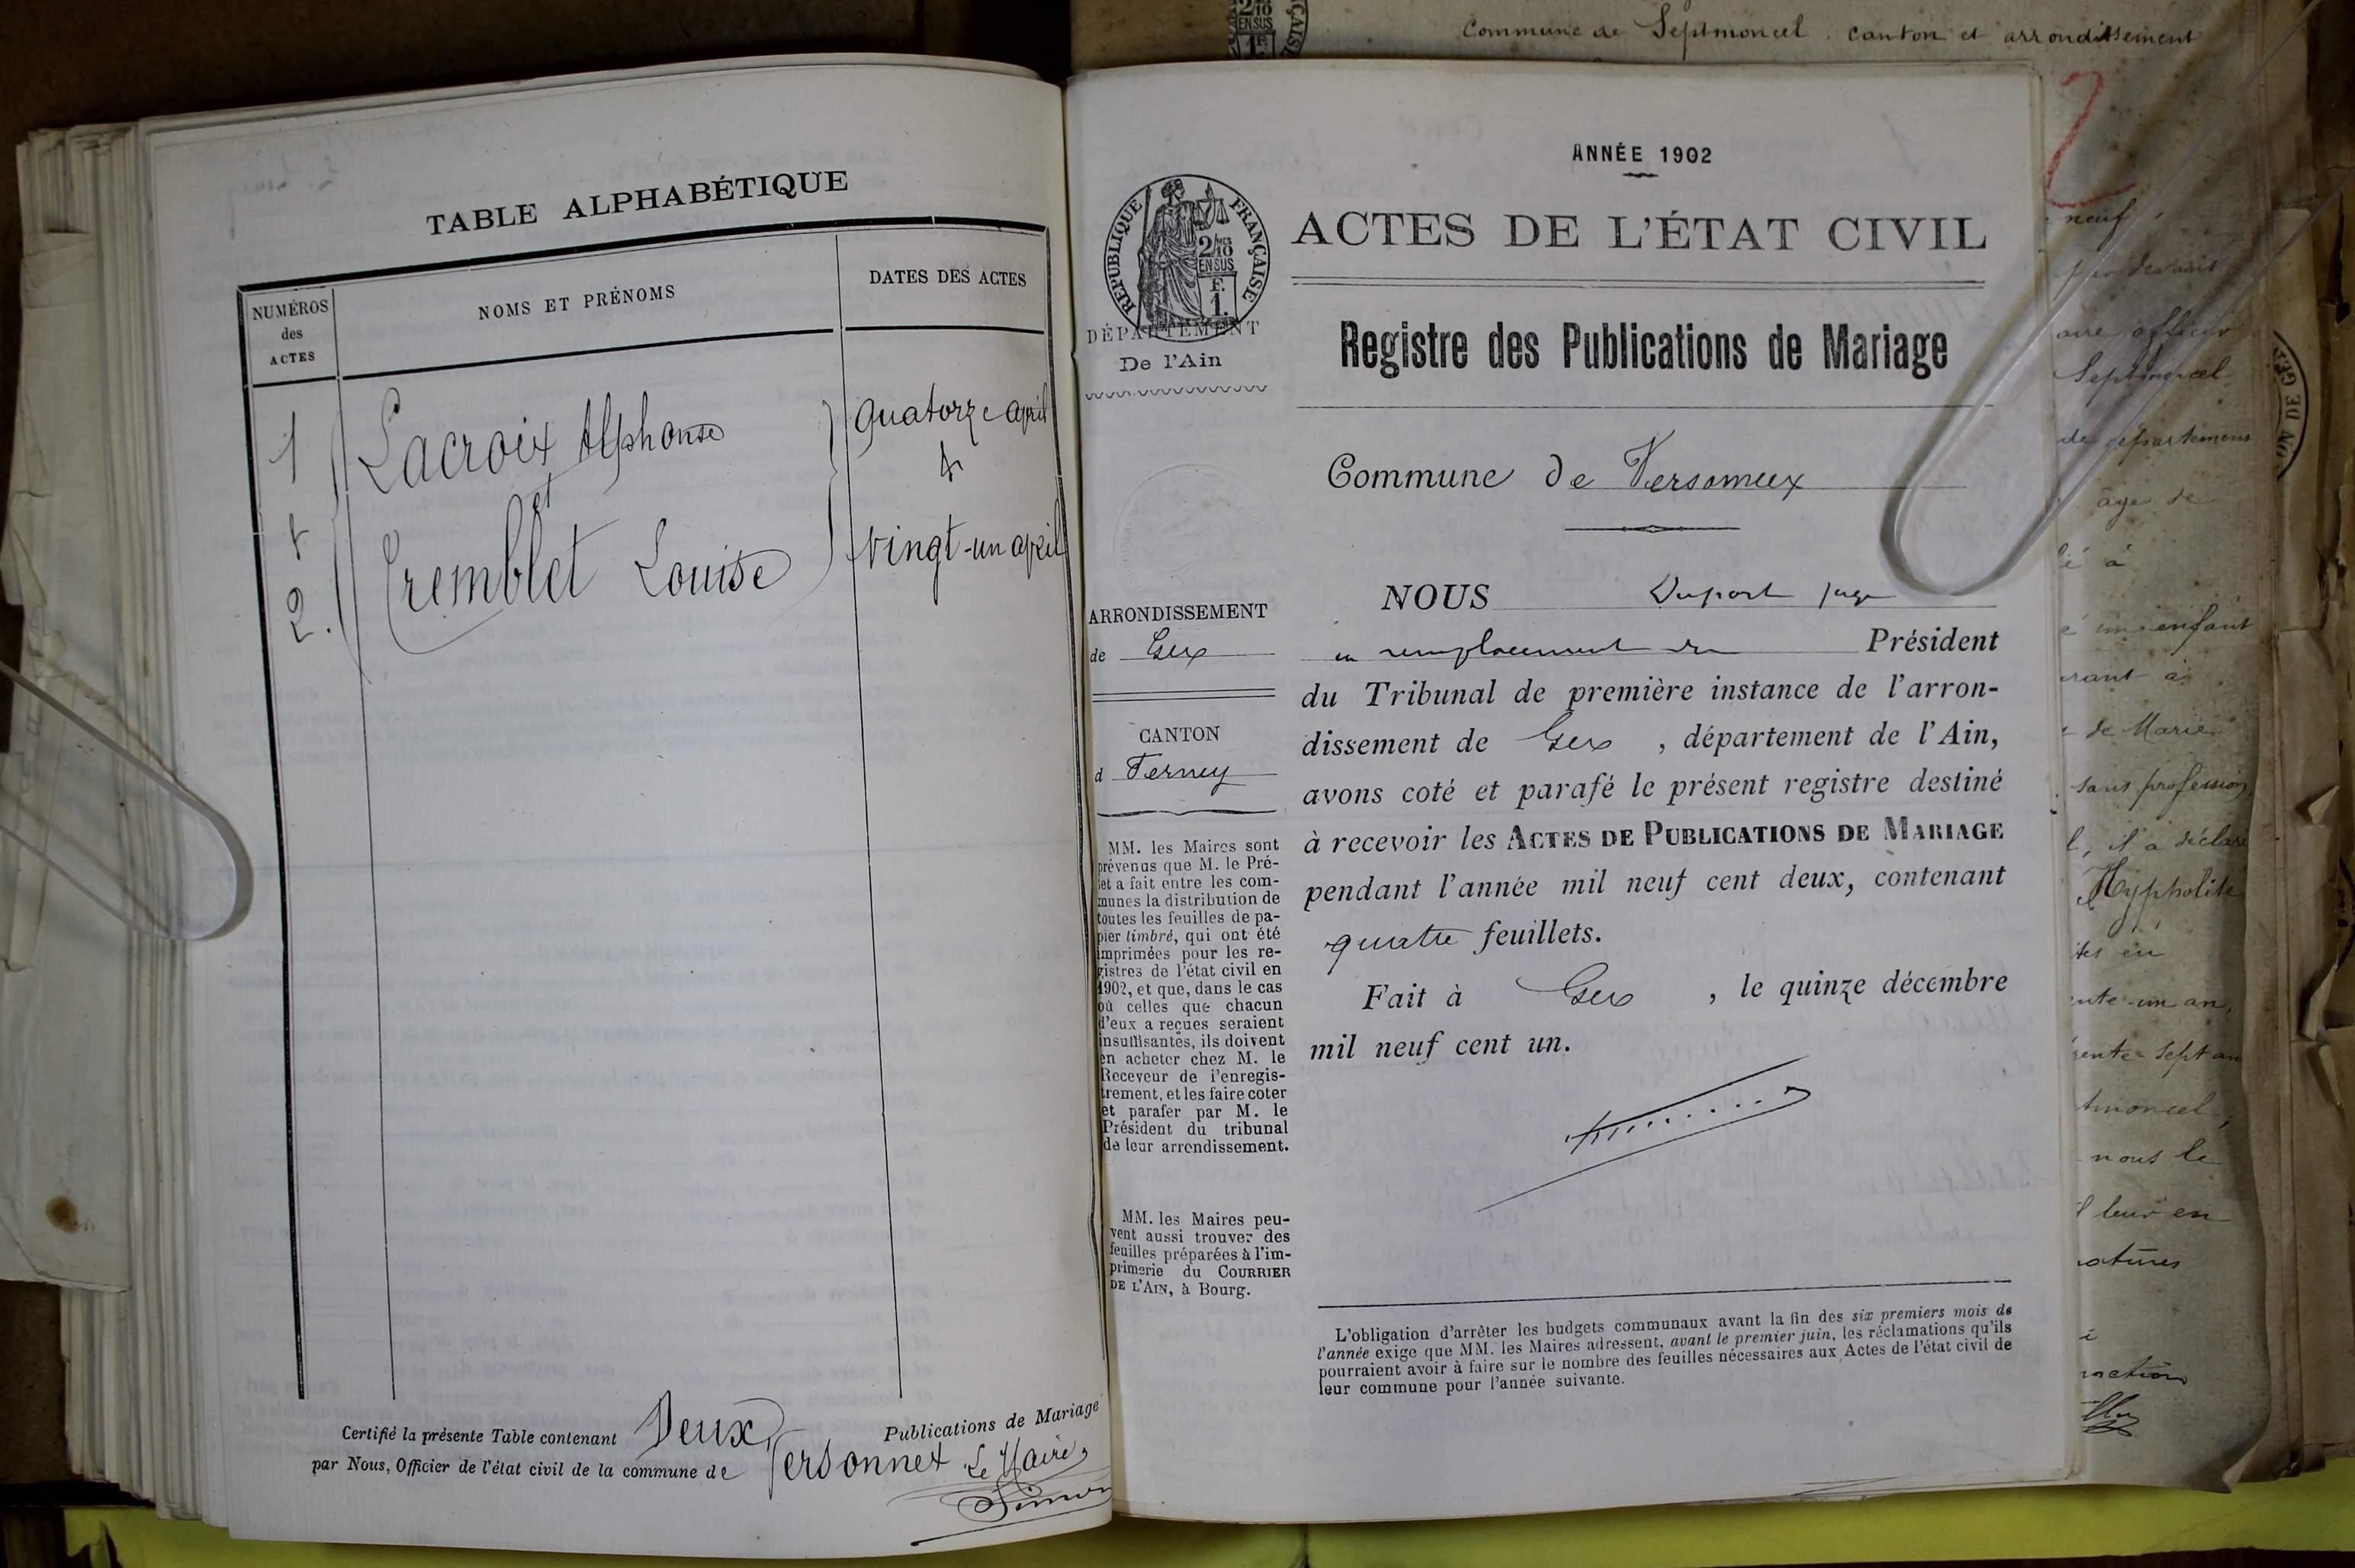 Commune de Septmoncel. canton et arrondissement
TABLE ALPHABÉTIQUE
NUMÉROS
des
ACTES
NOMS ET PRÉNOMS
DATES DES ACTES
1
Lacroix Alphonse
Quatorze april
&
et
&
2.
Tremblet Louise
vingt-un april
Certifié la présente Table contenant Deux Publications de Mariage
par Nous, Officier de l'état civil de la commune de Versonnex Le Maire
Simon
ANNÉE 1902
RÉPUBLIQUE FRANÇAISE
2/10
EN SUS
F.
1.
ACTES DE L'ÉTAT CIVIL
DÉPARTEMENT
De l'Ain
Registre des Publications de Mariage
Commune de Versonnex
ARRONDISSEMENT
de Gex
CANTON
d Ferney
MM. les Maires sont
prévenus que M. le Pré-
fet a fait entre les com-
munes la distribution de
toutes les feuilles de pa-
pier timbré, qui ont été
imprimées pour les re-
gistres de l'état civil en
1902, et que, dans le cas
où celles que chacun
d'eux a reçues seraient
insuffisantes, ils doivent
en acheter chez M. le
Receveur de l'enregis-
trement, et les faire coter
et parafer par M. le
Président du tribunal
de leur arrondissement.
MM. les Maires peu-
vent aussi trouver des
feuilles préparées à l'im-
primerie du COURRIER
DE L'AIN, à Bourg.
NOUS Duport juge
en remplacement du Président
du Tribunal de première instance de l'arron-
dissement de Gex, département de l'Ain,
avons coté et parafé le présent registre destiné
à recevoir les ACTES DE PUBLICATIONS DE MARIAGE
pendant l'année mil neuf cent deux, contenant
quatre feuillets.
Fait à Gex, le quinze décembre
mil neuf cent un.
L'obligation d'arrêter les budgets communaux avant la fin des six premiers mois de
l'année exige que MM. les Maires adressent, avant le premier juin, les réclamations qu'ils
pourraient avoir à faire sur le nombre des feuilles nécessaires aux Actes de l'état civil de
leur commune pour l'année suivante.
2
neuf,
par devant
officier
Septmoncel
de département
âgé de
à
enfant
de Marie
sans profession,
il a déclaré
Hyppolite
en
un an,
sept ans
nous le
leur en